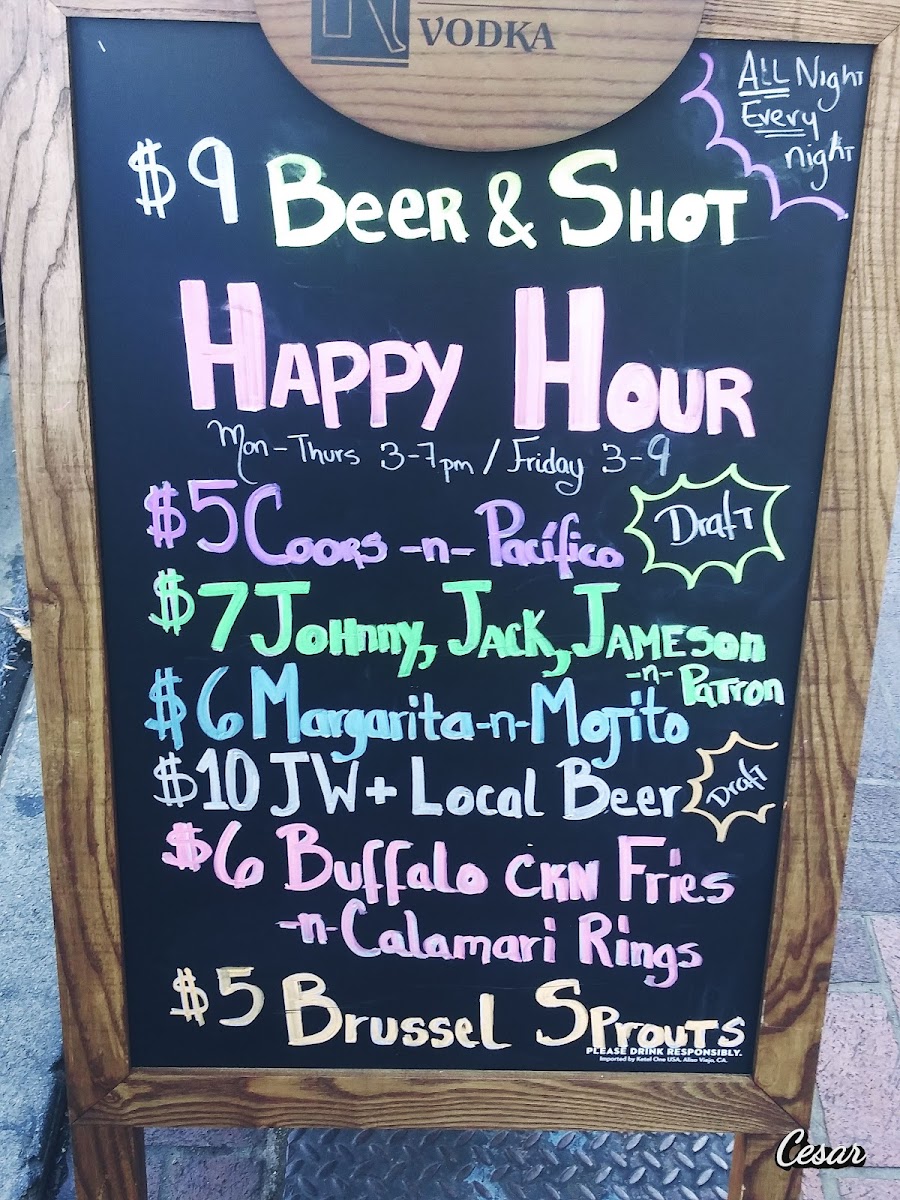 VODKA
ALL Night
Every
night
$9 Beer & Shot
Happy Hour
Mon-Thurs 3-7pm / Friday 3-9
$5 Coors -n- Pacífico Draft
$7 Johnny, Jack, Jameson
-n- Patron
$6 Margarita-n-Mojito
$10 JW + Local Beer Draft
$6 Buffalo CKN Fries
-n- Calamari Rings
$5 Brussel Sprouts
PLEASE DRINK RESPONSIBLY.
Imported by Ketel One USA, Aliso Viejo, CA.
Cesar